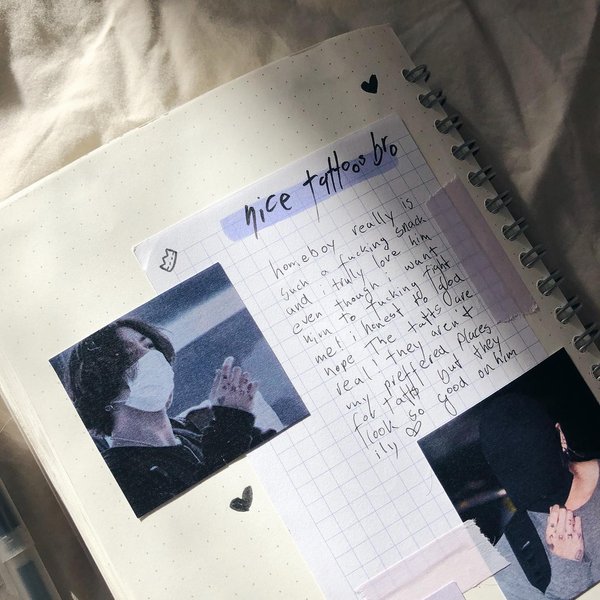 nice tattoos bro
homeboy really is
such a fucking snack
and i truly love him
even though i want
him to fucking fight
me! i honest to god
hope the tatts are
real! they aren't
my preffered places
for tatts but they
look so good on him
ily